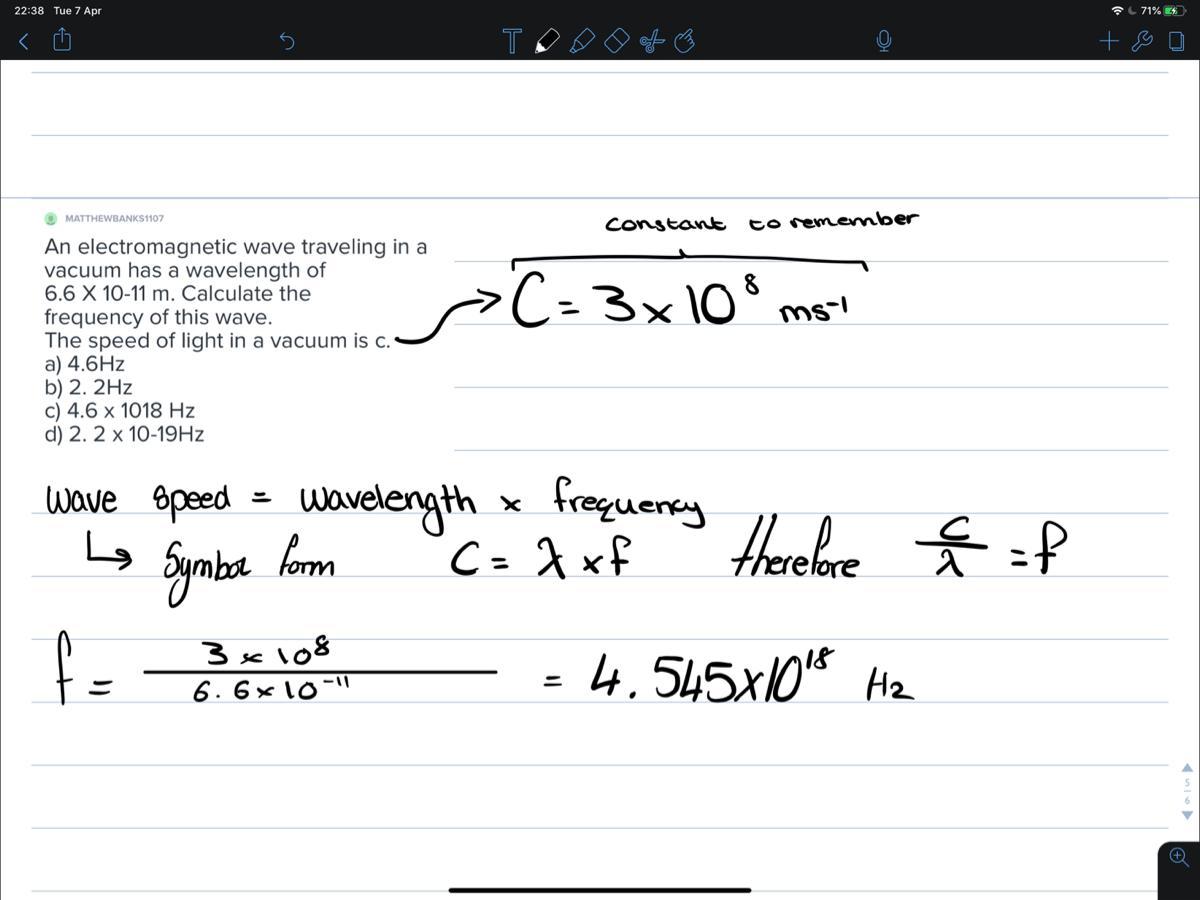 22:38 Tue 7 Apr
71%
T
MATTHEWBANKS1107
An electromagnetic wave traveling in a
vacuum has a wavelength of
6.6 X 10-11 m. Calculate the
frequency of this wave.
The speed of light in a vacuum is c.
a) 4.6Hz
b) 2. 2Hz
c) 4.6 x 1018 Hz
d) 2. 2 x 10-19Hz
constant to remember
C = 3 x 10⁸ ms⁻¹
wave speed = wavelength x frequency
↳ Symbol form C = λ x f therefore c/λ = f
f = 3 x 10⁸ / 6.6 x 10⁻¹¹ = 4.545x10¹⁸ Hz
5
6